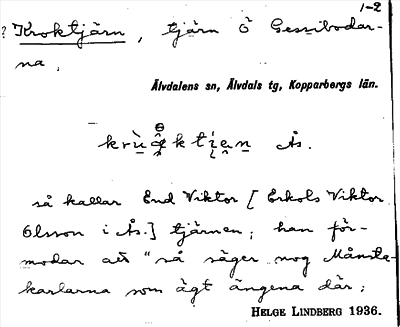 1-2
? Kroktjärn, tjärn Ö Gessibodar-
na.
Älvdalens sn, Älvdals tg, Kopparbergs län.
Ås.
så kallar End Viktor [Erkols Viktor
Olsson i Ås.] tjärnen; han för-
modar att "så säger nog Månsta-
karlarna som ägt ängena där;
HELGE LINDBERG 1936.